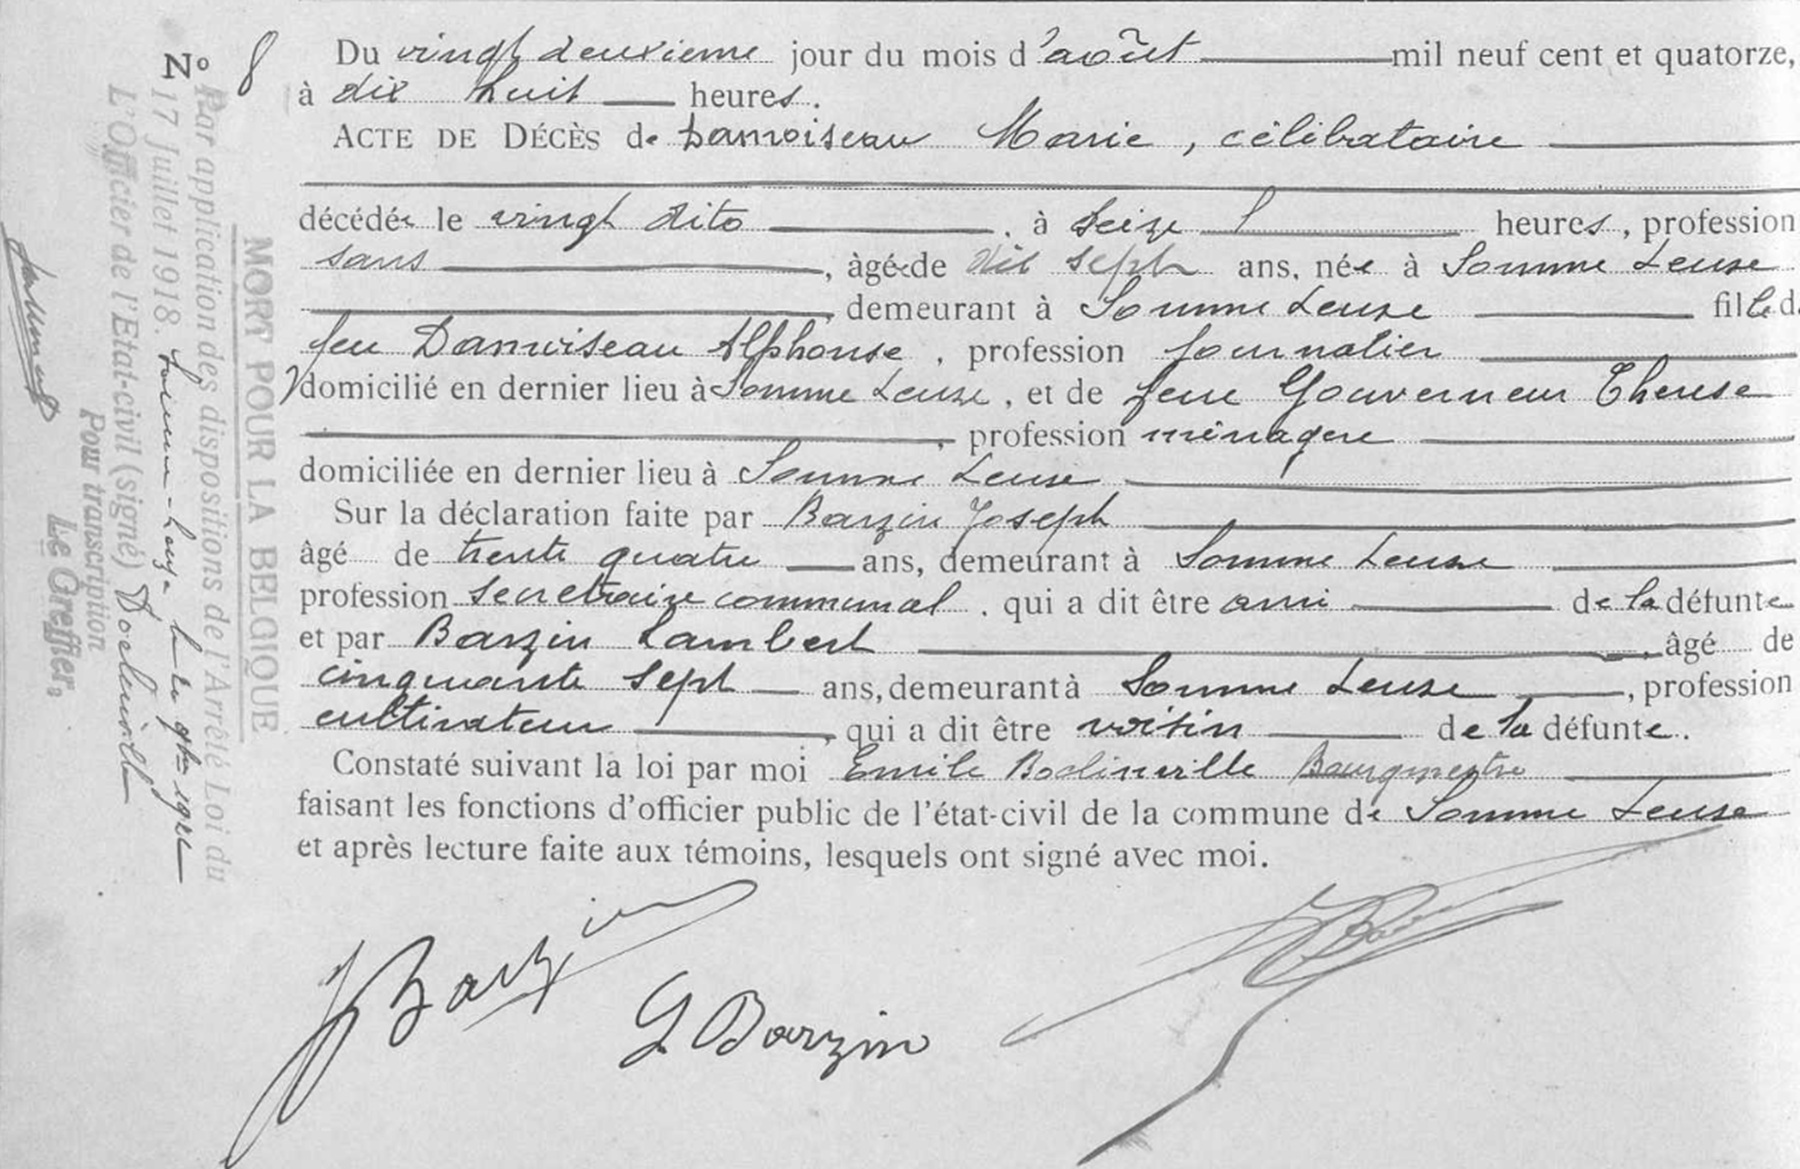 N° 8
Du vingt deuxieme jour du mois d'août mil neuf cent et quatorze,
à dix huit heures.
ACTE DE DÉCÈS de Damoiseau Marie, célibataire
décédée le vingt dito, à seize heures, profession
sans, âgée de dix sept ans, née à Somme Leuze
demeurant à Somme Leuze fille d
feu Damoiseau Alphonse, profession journalier
domicilié en dernier lieu à Somme Leuze, et de feue Gouverneur Therese
, profession ménagere
domiciliée en dernier lieu à Somme Leuze
Sur la déclaration faite par Barzin Joseph
âgé de trente quatre ans, demeurant à Somme Leuze
profession secretaire communal, qui a dit être ami de la défunte
et par Barzin Lambert, âgé de
cinquante sept ans, demeurant à Somme Leuze, profession
cultivateur, qui a dit être voisin de la défunte.
Constaté suivant la loi par moi Emile Bourgmestre
faisant les fonctions d'officier public de l'état-civil de la commune de Somme Leuze
et après lecture faite aux témoins, lesquels ont signé avec moi.
J Barzin
L Barzin
MORT POUR LA BELGIQUE
Par application des dispositions de l'Arrêté Loi du
17 Juillet 1918. Somme-Leuze le
L'Officier de l'Etat-civil (signé)
Pour transcription
Le Greffier,